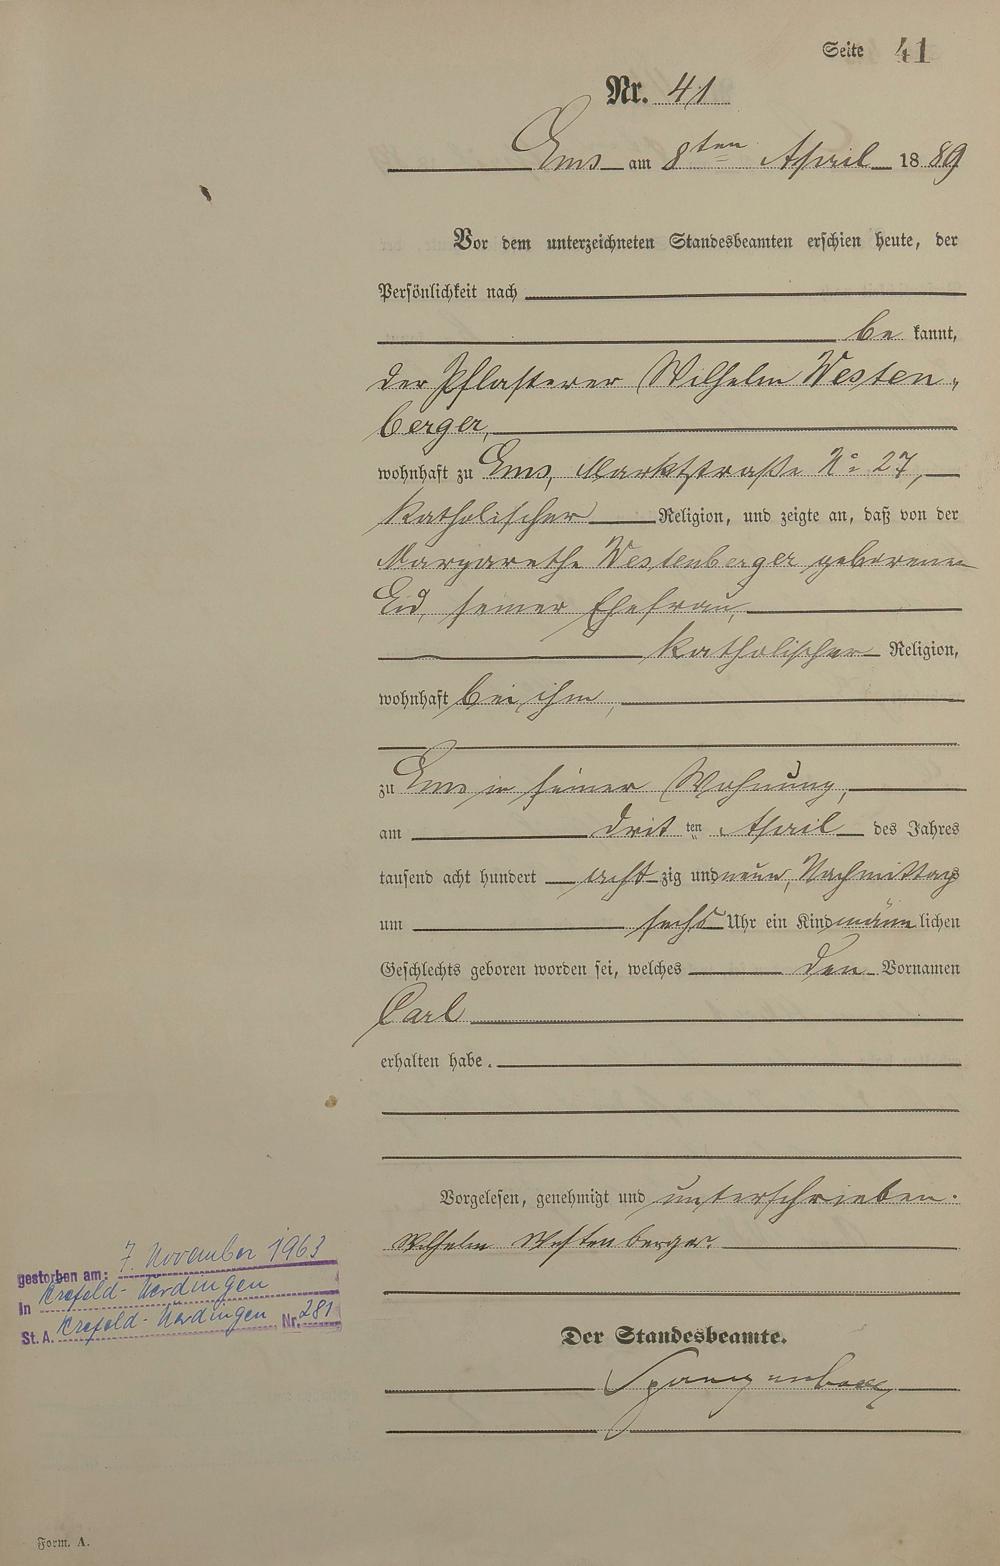 Seite 41
Nr. 41
Ems am 8ten April 1889
Vor dem unterzeichneten Standesbeamten erschien heute, der
Persönlichkeit nach
be kannt,
der Pflasterer Wilhelm Westen-
berger,
wohnhaft zu Ems, Marktstraße No 27,
katholischer Religion, und zeigte an, daß von der
Margarethe Westenberger geborenen
Eid, seiner Ehefrau,
katholischer Religion,
wohnhaft bei ihm,
zu Ems in seiner Wohnung,
am dritten April des Jahres
tausend acht hundert acht zig und neun, Nachmittags
um sechs Uhr ein Kind männlichen
Geschlechts geboren worden sei, welches den Vornamen
Carl
erhalten habe.
Vorgelesen, genehmigt und unterschrieben.
Wilhelm Westenberger.
gestorben am: 7. November 1963
In Krefeld-Uerdingen
St. A. Krefeld-Uerdingen Nr. 281
Der Standesbeamte.
Form. A.